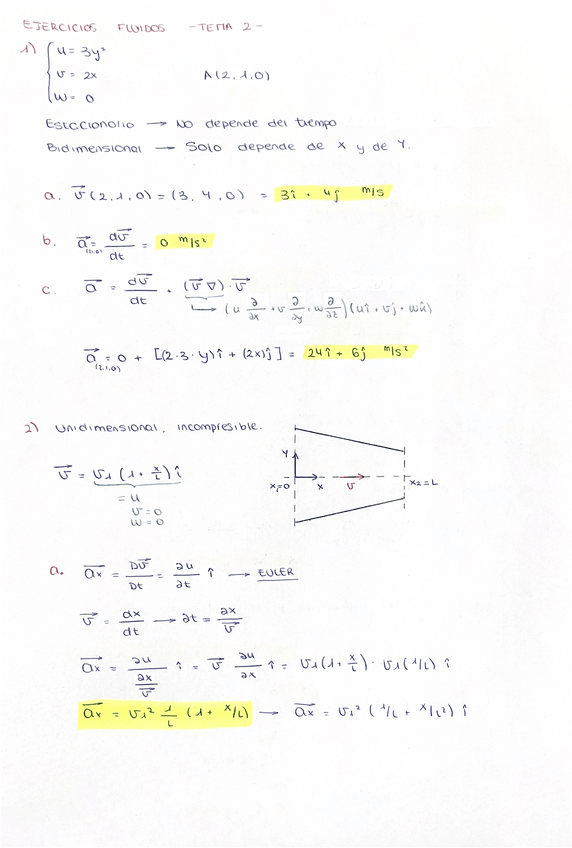 EJERCICIOS FLUIDOS - TEMA 2 -
1) { u = 3y²
v = 2x
A(2,1,0)
w = 0
Estacionario → No depende del tiempo
Bidimensional → Solo depende de x y de Y.
a. v⃗ (2,1,0) = (3, 4, 0) = 3î + 4ĵ m/s
b. a⃗ (2,1,0) = dv⃗/dt = 0 m/s²
c. a⃗ = dv⃗/dt + (v⃗ ∇)·v⃗
→ (u ∂/∂x + v ∂/∂y + w ∂/∂z)(uî + vĵ + wû)
a⃗ (2,1,0) = 0 + [(2·3·y)î + (2x)ĵ] = 24î + 6ĵ m/s²
2) Unidimensional, incompresible.
v⃗ = v1 (1 + x/L) î
= u
v = 0
w = 0
Y
x1=0
x
v
x2=L
a. a⃗x = Dv⃗/Dt = ∂u/∂t î → EULER
v⃗ = dx/dt → ∂t = ∂x/v⃗
a⃗x = ∂u/(∂x/v⃗) î = v⃗ ∂u/∂x î = v1(1 + x/L) · v1(1/L) î
a⃗x = v1² 1/L (1 + x/L) → a⃗x = v1² (1/L + x/L²) î